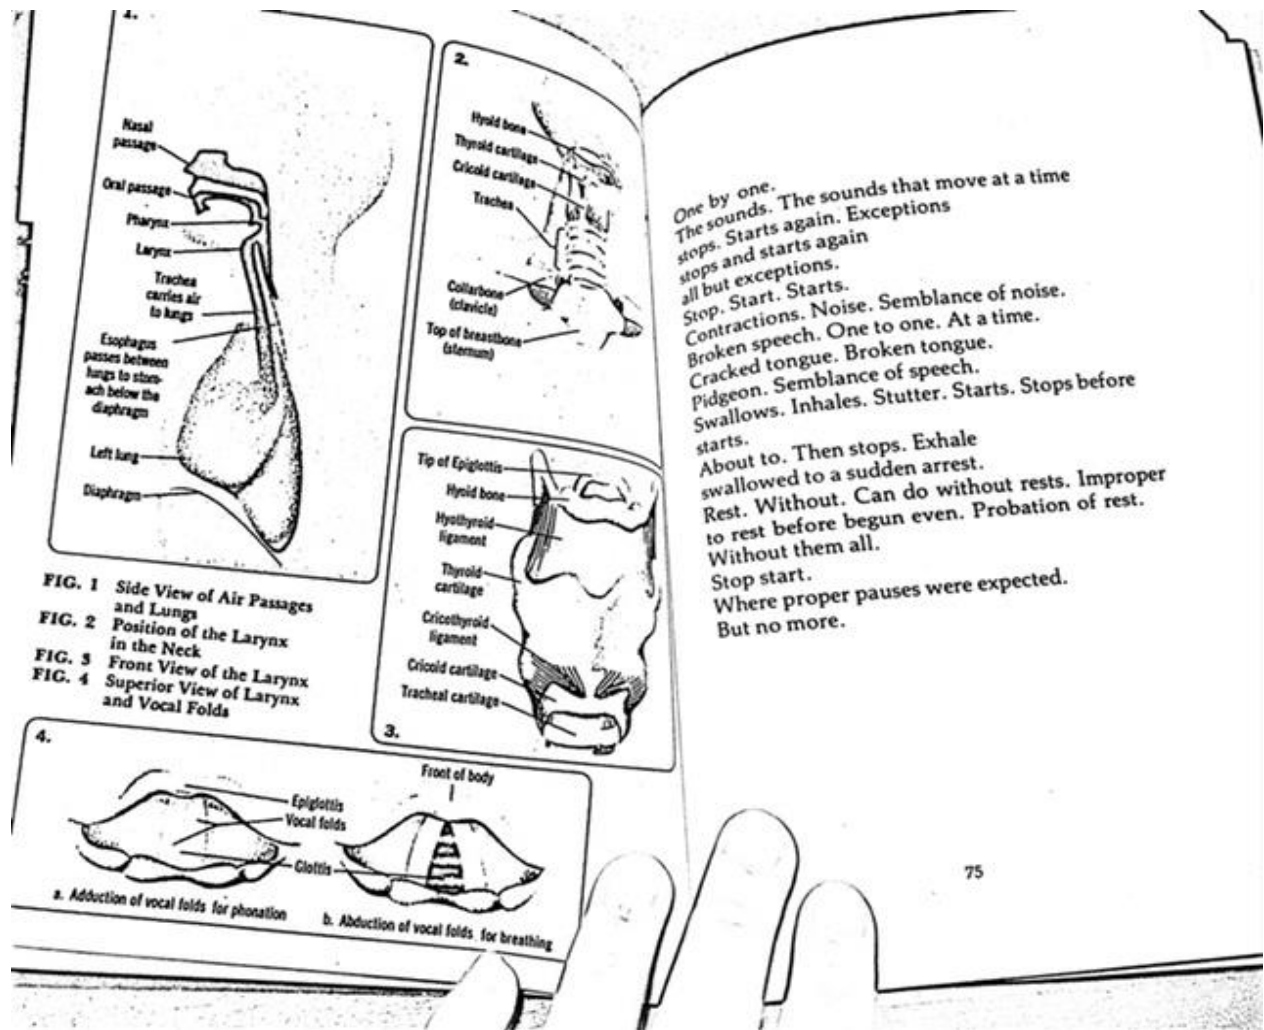 1.
Nasal
passage
Oral passage
Pharynx
Larynx
Trachea
carries air
to lungs
Esophagus
passes between
lungs to stom-
ach below the
diaphragm
Left lung
Diaphragm
2.
Hyoid bone
Thyroid cartilage
Cricoid cartilage
Trachea
Collarbone
(clavicle)
Top of breastbone
(sternum)
Tip of Epiglottis
Hyoid bone
Hyothyroid
ligament
Thyroid
cartilage
Cricothyroid
ligament
Cricoid cartilage
Tracheal cartilage
3.
FIG. 1 Side View of Air Passages
and Lungs
FIG. 2 Position of the Larynx
in the Neck
FIG. 3 Front View of the Larynx
FIG. 4 Superior View of Larynx
and Vocal Folds
4.
Front of body
Epiglottis
Vocal folds
Glottis
a. Adduction of vocal folds for phonation
b. Abduction of vocal folds for breathing
One by one.
The sounds. The sounds that move at a time
stops. Starts again. Exceptions
stops and starts again
all but exceptions.
Stop. Start. Starts.
Contractions. Noise. Semblance of noise.
Broken speech. One to one. At a time.
Cracked tongue. Broken tongue.
Pidgeon. Semblance of speech.
Swallows. Inhales. Stutter. Starts. Stops before
starts.
About to. Then stops. Exhale
swallowed to a sudden arrest.
Rest. Without. Can do without rests. Improper
to rest before begun even. Probation of rest.
Without them all.
Stop start.
Where proper pauses were expected.
But no more.
75